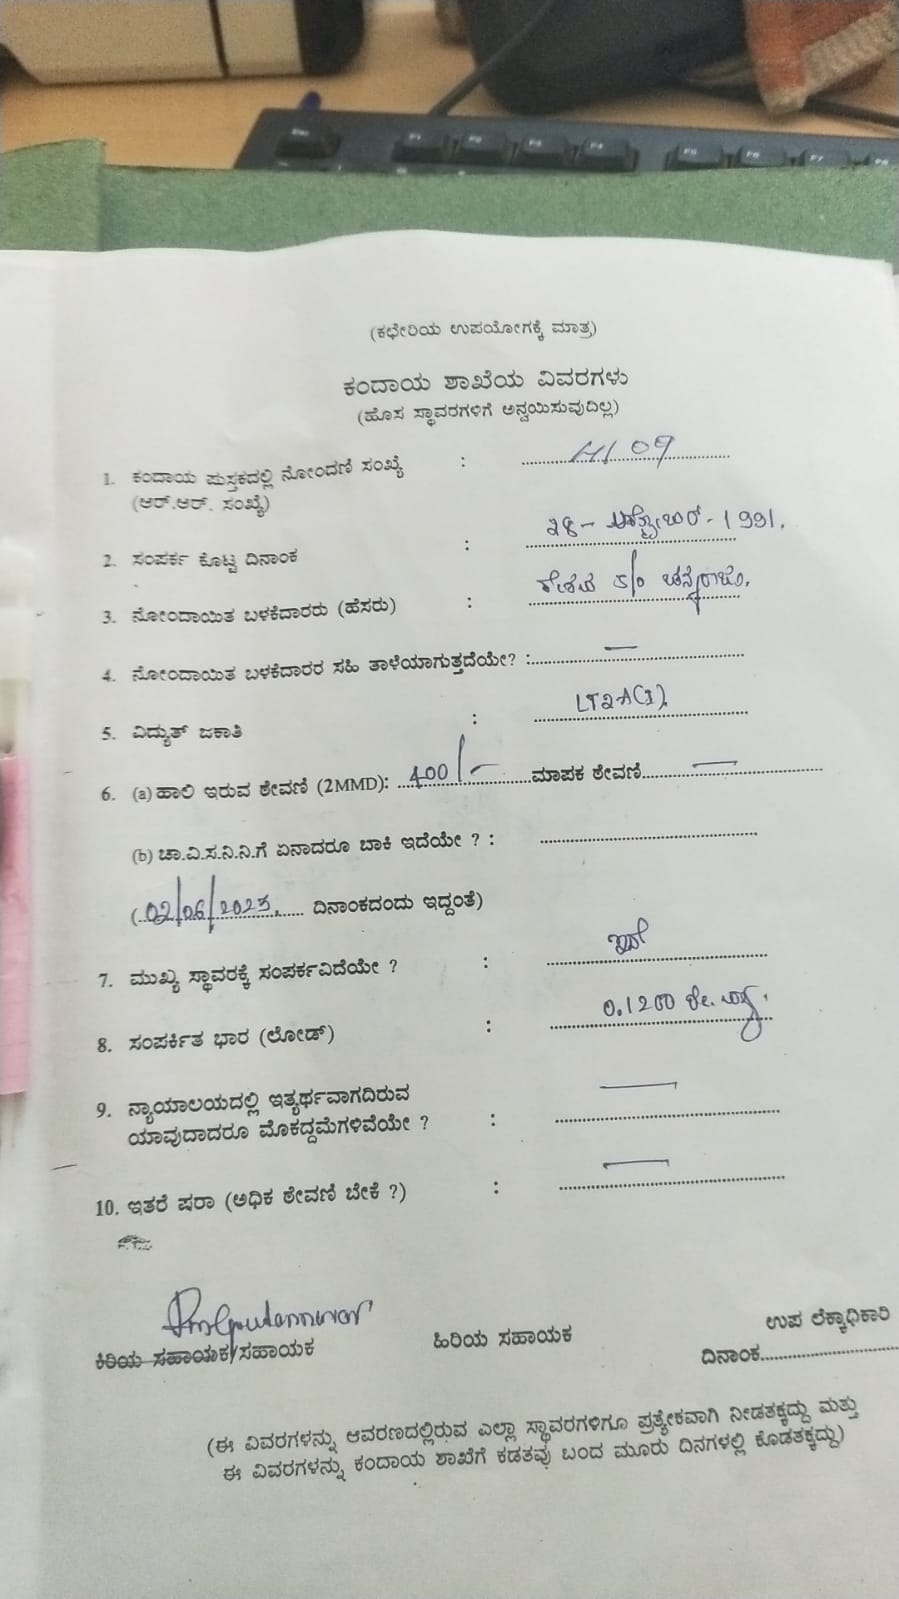 (ಕಛೇರಿಯ ಉಪಯೋಗಕ್ಕೆ ಮಾತ್ರ)
ಕಂದಾಯ ಶಾಖೆಯ ವಿವರಗಳು
(ಹೊಸ ಸ್ಥಾವರಗಳಿಗೆ ಅನ್ವಯಿಸುವುದಿಲ್ಲ)
1. ಕಂದಾಯ ಪುಸ್ತಕದಲ್ಲಿ ನೋಂದಣಿ ಸಂಖ್ಯೆ :
(ಆರ್.ಆರ್. ಸಂಖ್ಯೆ)
2. ಸಂಪರ್ಕ ಕೊಟ್ಟ ದಿನಾಂಕ : -1991.
3. ನೋಂದಾಯಿತ ಬಳಕೆದಾರರು (ಹೆಸರು) : ಕೇಶವ S/o
4. ನೋಂದಾಯಿತ ಬಳಕೆದಾರರ ಸಹಿ ತಾಳೆಯಾಗುತ್ತದೆಯೇ? : —
5. ವಿದ್ಯುತ್ ಜಕಾತಿ :
6. (a) ಹಾಲಿ ಇರುವ ಠೇವಣಿ (2MMD): 400/- ಮಾಪಕ ಠೇವಣಿ —
(b) ಚಾ.ವಿ.ಸ.ನಿ.ನಿ.ಗೆ ಏನಾದರೂ ಬಾಕಿ ಇದೆಯೇ ? :
(02/06/2023, ದಿನಾಂಕದಂದು ಇದ್ದಂತೆ)
7. ಮುಖ್ಯ ಸ್ಥಾವರಕ್ಕೆ ಸಂಪರ್ಕವಿದೆಯೇ ? :
8. ಸಂಪರ್ಕಿತ ಭಾರ (ಲೋಡ್) : 0.1200 ಕೆ.
9. ನ್ಯಾಯಾಲಯದಲ್ಲಿ ಇತ್ಯರ್ಥವಾಗದಿರುವ
ಯಾವುದಾದರೂ ಮೊಕದ್ದಮೆಗಳಿವೆಯೇ ? : —
10. ಇತರೆ ಷರಾ (ಅಧಿಕ ಠೇವಣಿ ಬೇಕೆ ?) : —
ಕಿರಿಯ ಸಹಾಯಕ/ಸಹಾಯಕ ಹಿರಿಯ ಸಹಾಯಕ ಉಪ ಲೆಕ್ಕಾಧಿಕಾರಿ
ದಿನಾಂಕ
(ಈ ವಿವರಗಳನ್ನು ಆವರಣದಲ್ಲಿರುವ ಎಲ್ಲಾ ಸ್ಥಾವರಗಳಿಗೂ ಪ್ರತ್ಯೇಕವಾಗಿ ನೀಡತಕ್ಕದ್ದು ಮತ್ತು
ಈ ವಿವರಗಳನ್ನು ಕಂದಾಯ ಶಾಖೆಗೆ ಕಡತವು ಬಂದ ಮೂರು ದಿನಗಳಲ್ಲಿ ಕೊಡತಕ್ಕದ್ದು)